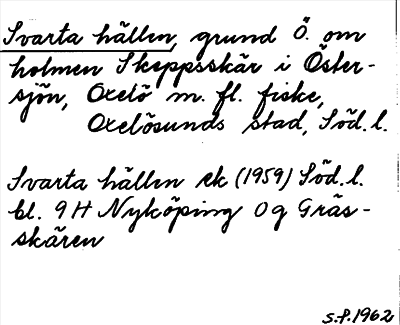 Svarta hällen, grund Ö. om
holmen Skeppsskär i Öster-
sjön, Oxelö m. fl. fiske,
Oxelösunds stad, Söd. l.
Svarta hällen ek (1959) Söd. l.
bl. 9H Nyköping 0g Gräs-
skären
S.P. 1962